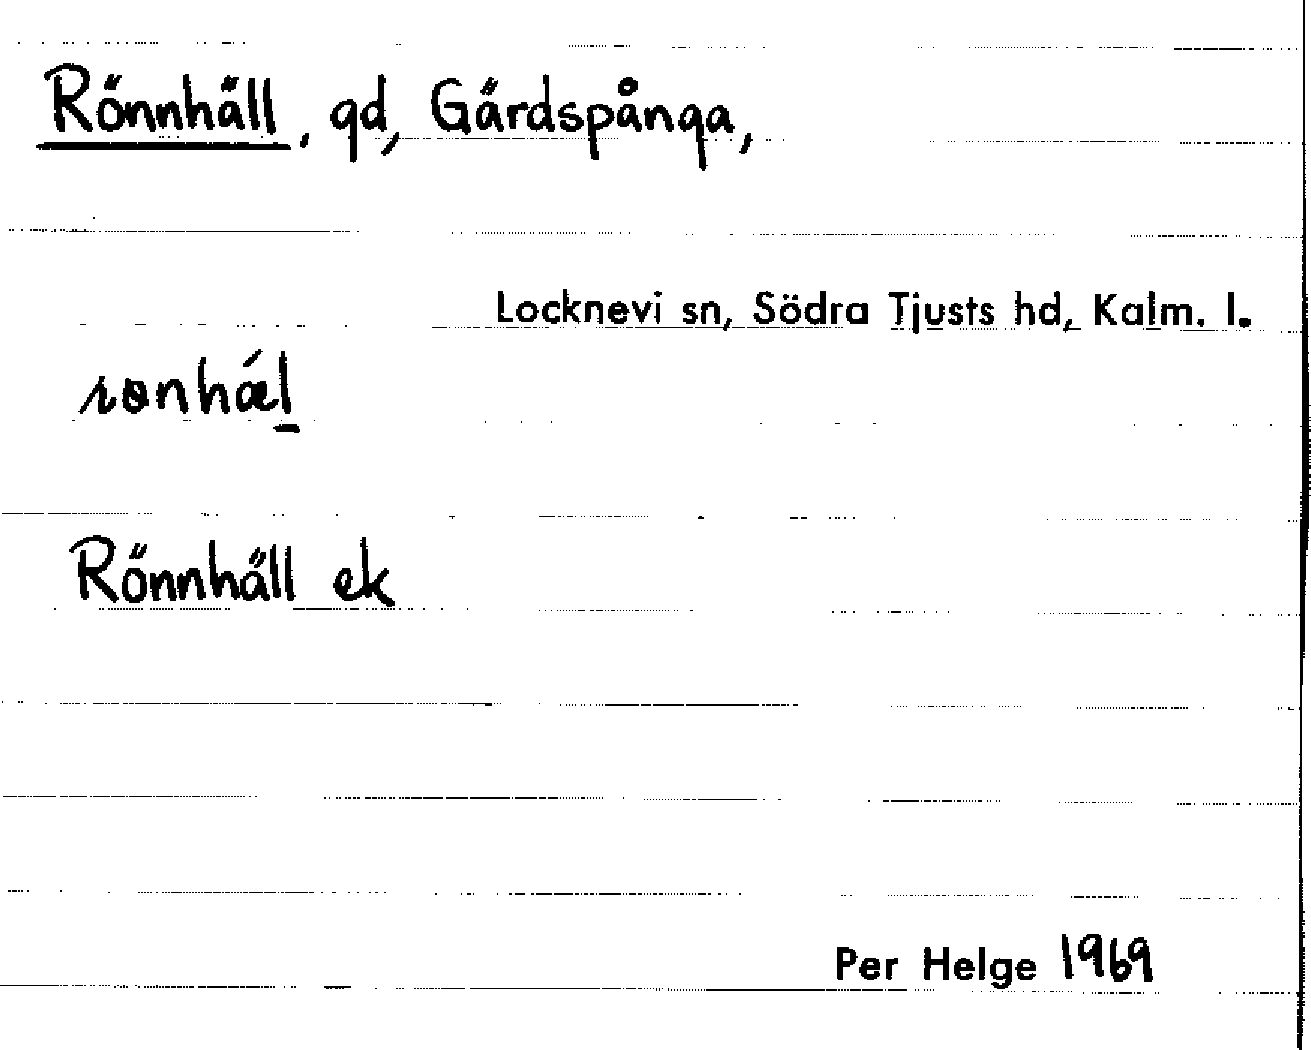 Rönnhäll, gd, Gärdspånga,
Locknevi sn, Södra Tjusts hd, Kalm. l.
rɵnhǽl̲
Rönnhäll ek
Per Helge 1969